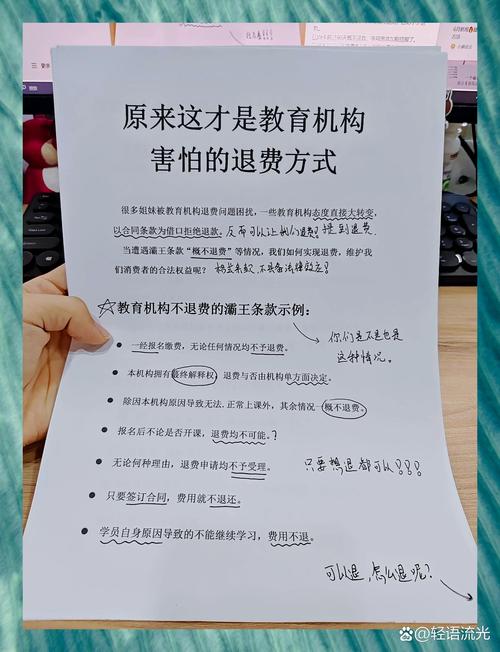 原来这才是教育机构
害怕的退费方式
很多姐妹被教育机构退费问题困扰，一些教育机构态度直接大转变，
以合同条款为借口拒绝退款。反而可以让他们退费？接到退费
当遭遇灞王条款“概不退费”等情况，我们如何实现退费，维护我
们消费者的合法权益呢？格式条款，不具备法律效应？
☆教育机构不退费的灞王条款示例：
你们是不是也是
这种情况。
● 一经报名缴费，无论任何情况均不予退费。
● 本机构拥有最终解释权，退费与否由机构单方面决定。
● 除因本机构原因导致无法.正常上课外，其余情况一概不退费。
● 报名后不论是否开课，退费均不可能。？
● 无论何种理由，退费申请均不予受理。
只要想退都可以？？？
● 只要签订合同，费用就不退还。
● 学员自身原因导致的不能继续学习，费用不退。
可以退，怎么退呢？
百家号@轻语流光